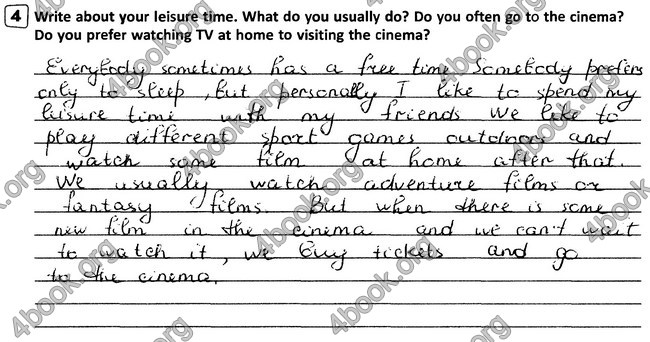 4 Write about your leisure time. What do you usually do? Do you often go to the cinema?
Do you prefer watching TV at home to visiting the cinema?
Everybody sometimes has a free time. Somebody prefers
only to sleep, but personally I like to spend my
leisure time with my friends. We like to
play different sport games outdoor and
watch some film at home after that.
We usually watch adventure films or
fantasy films. But when there is some
new film in the cinema and we can't wait
to watch it, we buy tickets and go
to the cinema.
4book.org